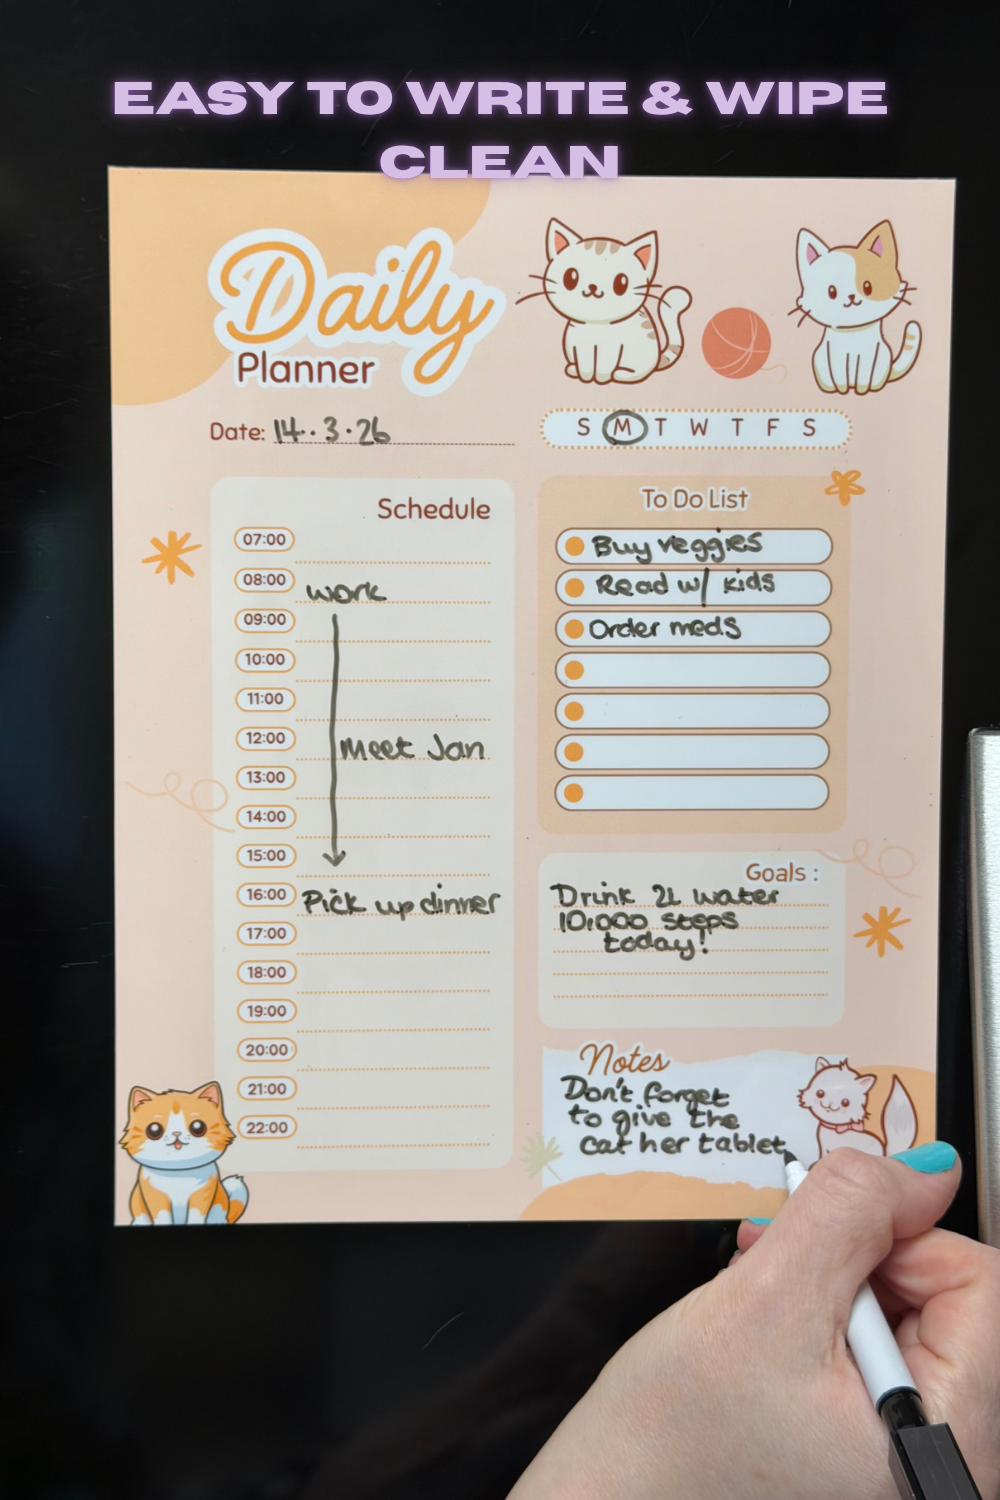 EASY TO WRITE & WIPE
CLEAN
Daily
Planner
Date: 14..3.26
S M T W T F S
Schedule
07:00
08:00 work
09:00
10:00
11:00
12:00 Meet Jan
13:00
14:00
15:00
16:00 Pick up dinner
17:00
18:00
19:00
20:00
21:00
22:00
To Do List
Buy veggies
Read w/ kids
Order meds
Goals :
Drink 2L water
10,000 steps
today!
Notes
Don't forget
to give the
cat her tablet